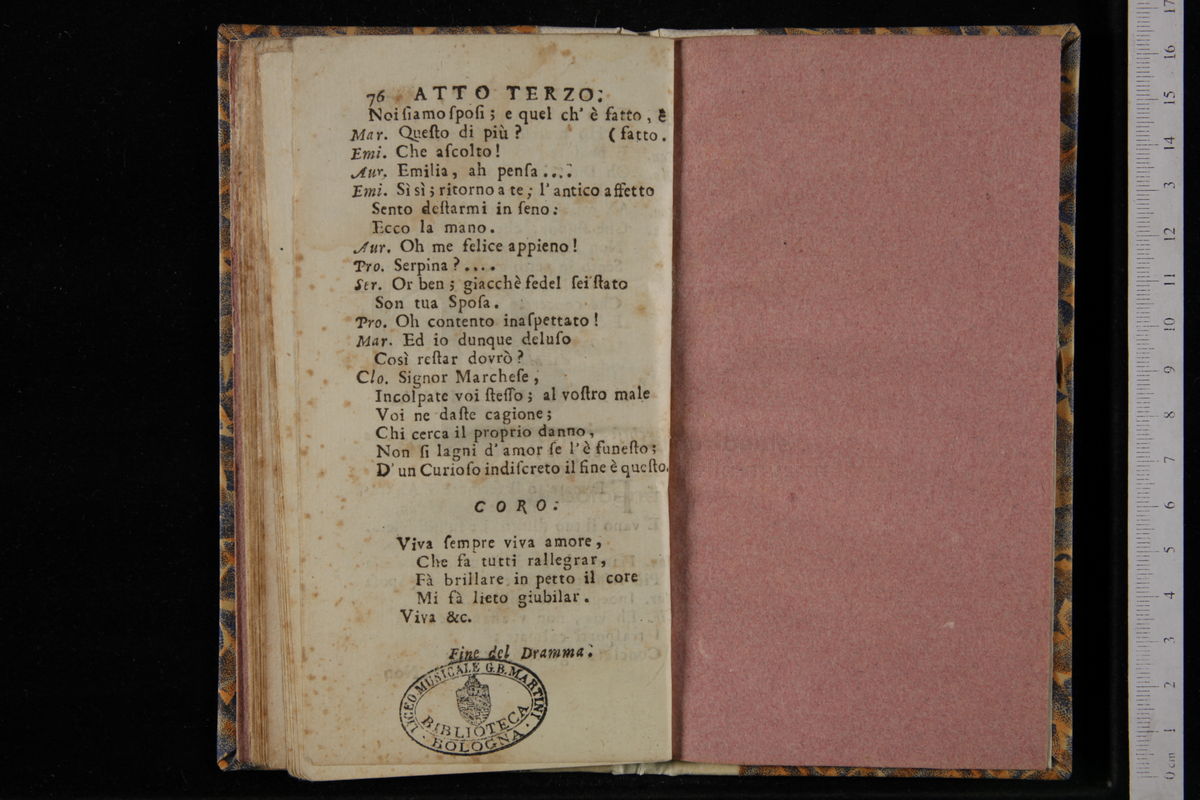 76 ATTO TERZO.
Noi ſiamo ſpoſi; e quel ch' è fatto, è
Mar. Queſto di più? (fatto.
Emi. Che aſcolto!
Aur. Emilia, ah penſa....
Emi. Sì sì; ritorno a te; l' antico affetto
Sento deſtarmi in ſeno:
Ecco la mano.
Aur. Oh me felice appieno!
Pro. Serpina?....
Ser. Or ben; giacchè fedel ſei ſtato
Son tua Spoſa.
Pro. Oh contento inaſpettato!
Mar. Ed io dunque deluſo
Così reſtar dovrò?
Clo. Signor Marcheſe,
Incolpate voi ſteſſo; al voſtro male
Voi ne daſte cagione;
Chi cerca il proprio danno,
Non ſi lagni d' amor ſe l' è funeſto;
D' un Curioſo indiſcreto il fine è queſto.
CORO.
Viva ſempre viva amore,
Che fa tutti rallegrar,
Fà brillare in petto il core
Mi fà lieto giubilar.
Viva &c.
Fine del Dramma.
LICEO MUSICALE G.B. MARTINI
BIBLIOTECA
· BOLOGNA ·
0 cm 1 2 3 4 5 6 7 8 9 10 11 12 13 14 15 16 17